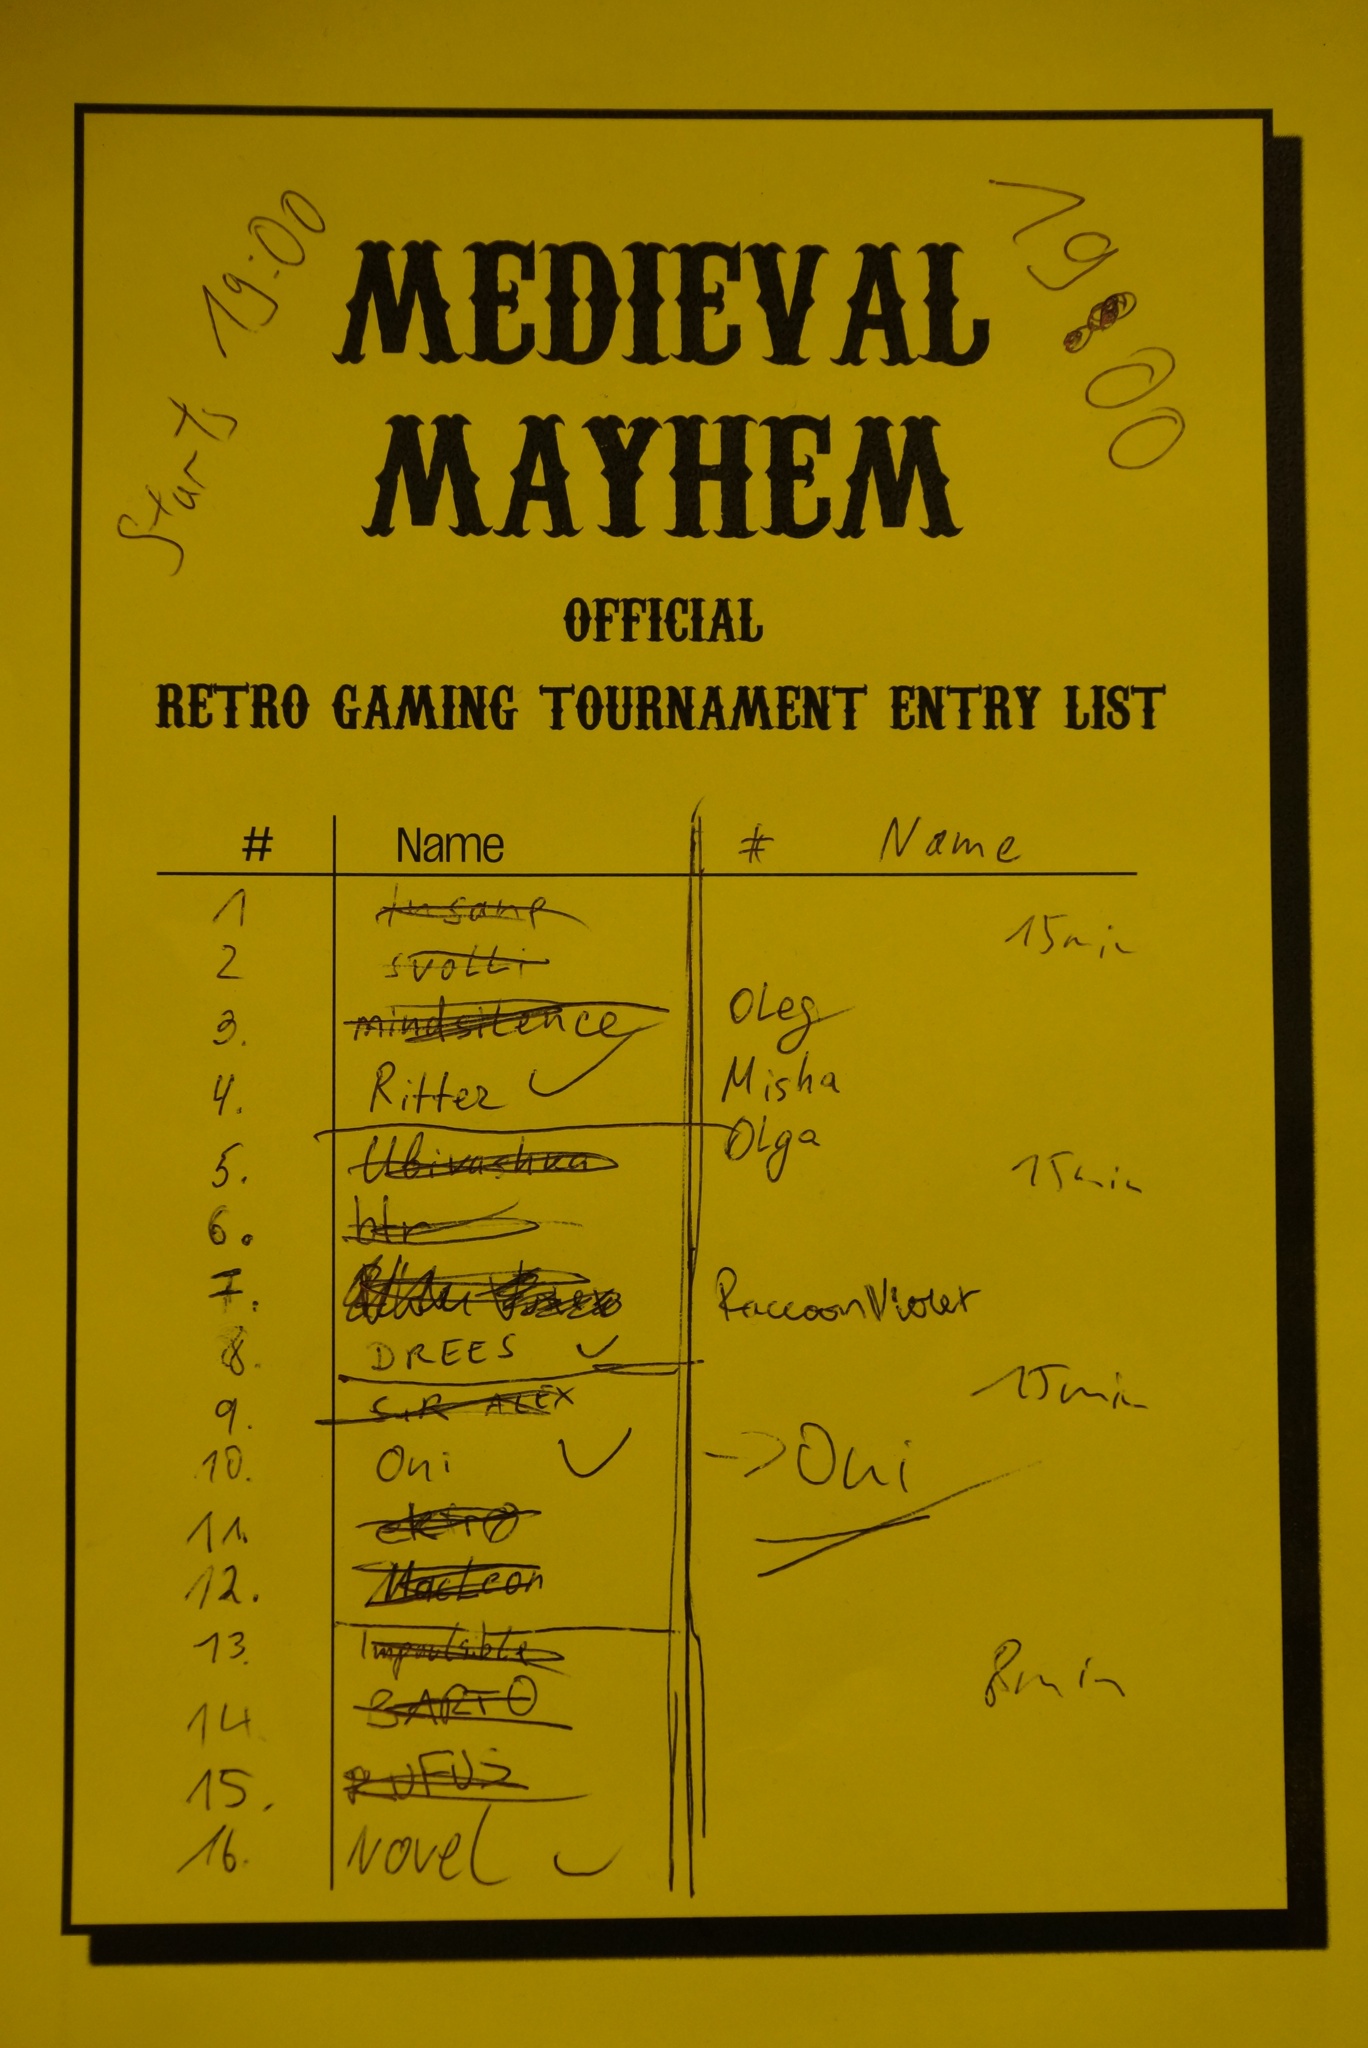 Starts 19:00
19:00
MEDIEVAL
MAYHEM
OFFICIAL
RETRO GAMING TOURNAMENT ENTRY LIST
# Name # Name
1 Insane
15min
2 svolli
3. mindsilence Oleg
4. Ritter ✓ Misha
Olga
5. Ubivashka
15min
6. btr
7. RaccoonViolet
8. DREES ✓
15min
9. SIR ALEX
10. Oni ✓ -> Oni
11. ektro
12. MacLeon
13. Impossible
8min
14 BARTO
15. RUFUS
16. Novel ✓